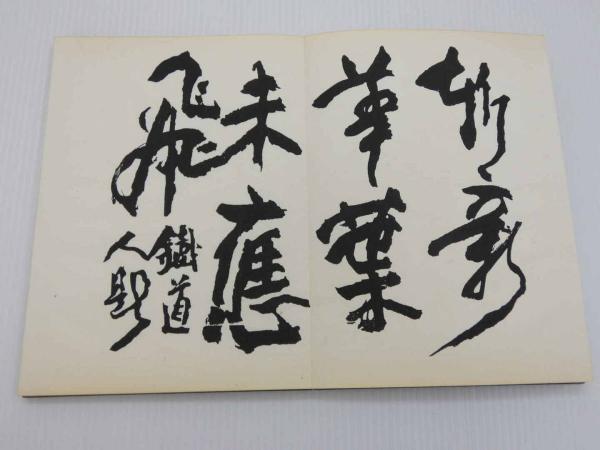 斬新
華葉
未應
飛
鐵道
人題